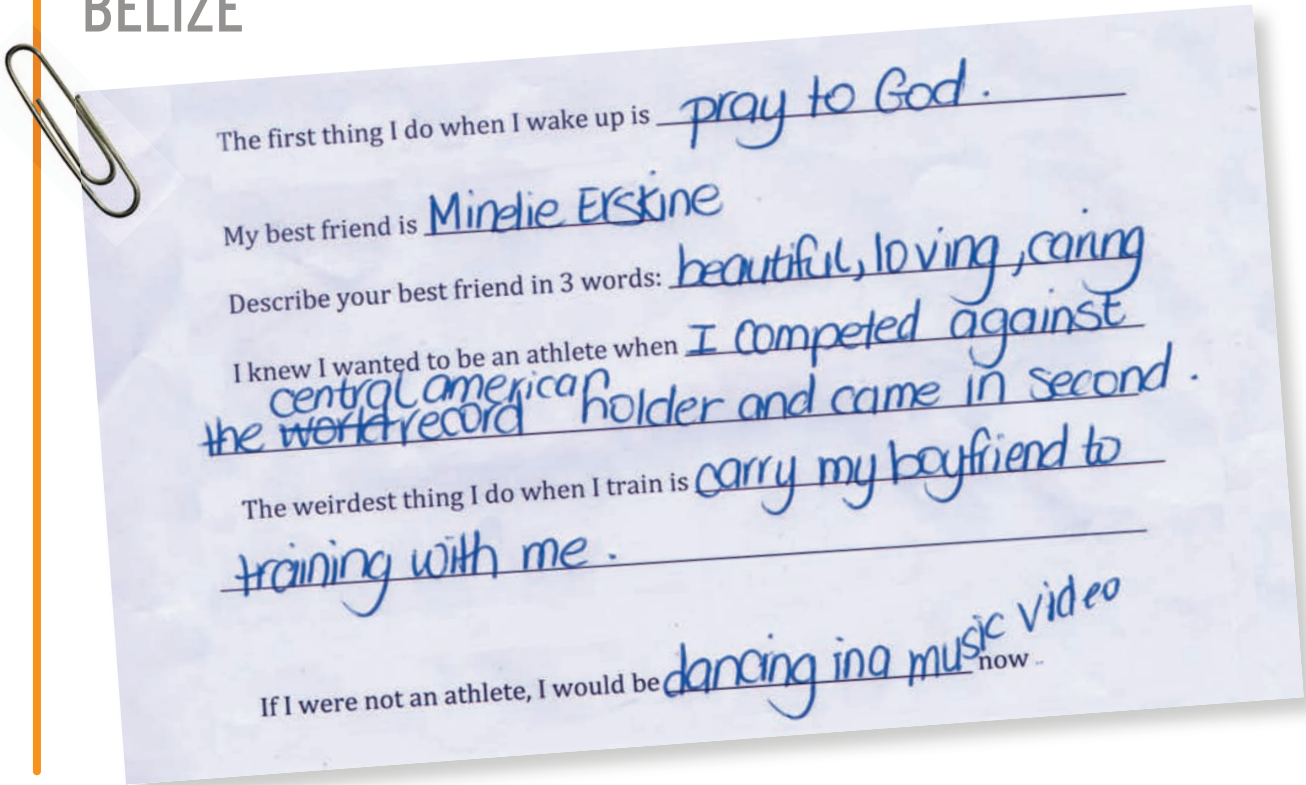 BELIZE
The first thing I do when I wake up is pray to God.
My best friend is Mindie Erskine
Describe your best friend in 3 words: beautiful, loving, caring
I knew I wanted to be an athlete when I competed against
central american
the world record holder and came in second.
The weirdest thing I do when I train is carry my boyfriend to
training with me.
If I were not an athlete, I would be dancing in a music video now